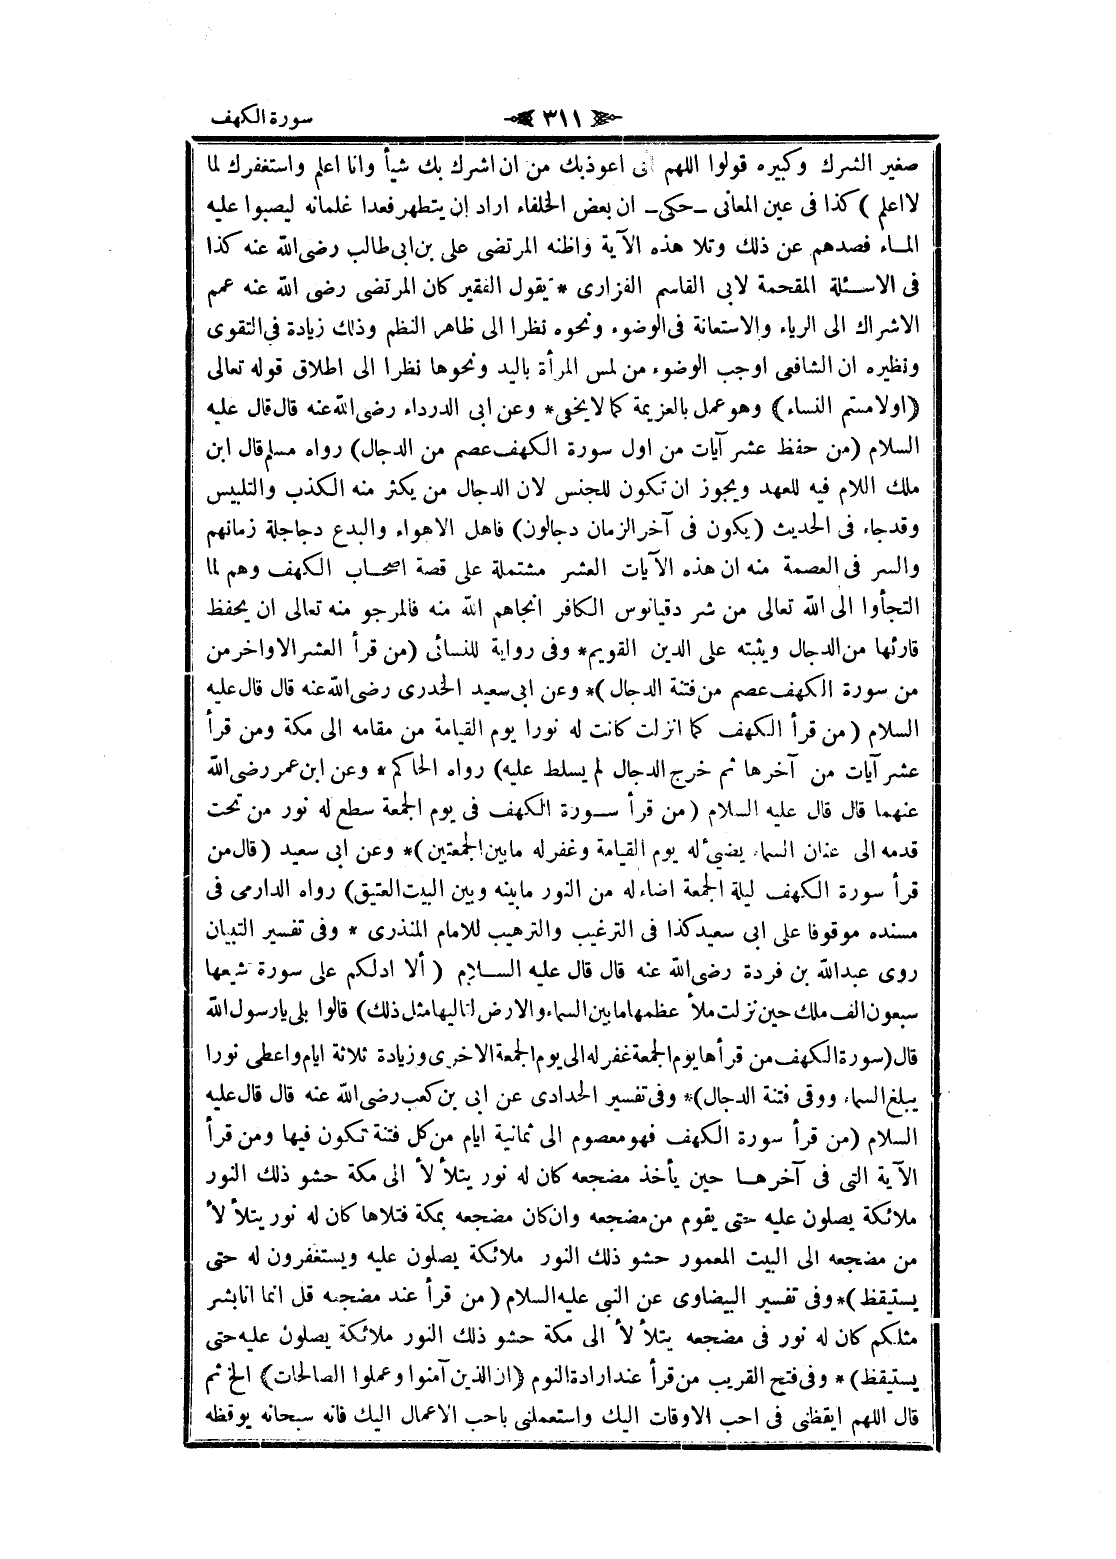 سورة الكهف ٣١١
صغير الشرك وكبيره قولوا اللهم انى اعوذبك من ان اشرك بك شيأ وانا اعلم واستغفرك لما
لااعلم ) كذا فى عين المعانى ـ حكى ـ ان بعض الخلفاء اراد ان يتطهر فعدا غلمانه ليصبوا عليه
الماء فصدهم عن ذلك وتلا هذه الآية واظنه المرتضى على بن ابى طالب رضى الله عنه كذا
فى الاسئلة المقحمة لابى القاسم الفزارى * يقول الفقير كان المرتضى رضى الله عنه عمم
الاشراك الى الرياء والاستعانة فى الوضوء ونحوه نظرا الى ظاهر النظم وذلك زيادة فى التقوى
ونظيره ان الشافعى اوجب الوضوء من لمس المرأة باليد ونحوها نظرا الى اطلاق قوله تعالى
(اولامستم النساء) وهو عمل بالعزيمة كما لايخفى * وعن ابى الدرداء رضى الله عنه قال قال عليه
السلام (من حفظ عشر آيات من اول سورة الكهف عصم من الدجال) رواه مسلم قال ابن
ملك اللام فيه للعهد ويجوز ان تكون للجنس لان الدجال من يكثر منه الكذب والتلبيس
وقدجاء فى الحديث (يكون فى آخر الزمان دجالون) فاهل الاهواء والبدع دجاجلة زمانهم
والسر فى العصمة منه ان هذه الآيات العشر مشتملة على قصة اصحاب الكهف وهم لما
التجأوا الى الله تعالى من شر دقيانوس الكافر انجاهم الله منه فالمرجو منه تعالى ان يحفظ
قارئها من الدجال ويثبته على الدين القويم * وفى رواية للنسائى (من قرأ العشر الاواخر من
من سورة الكهف عصم من فتنة الدجال) * وعن ابى سعيد الخدرى رضى الله عنه قال قال عليه
السلام (من قرأ الكهف كما انزلت كانت له نورا يوم القيامة من مقامه الى مكة ومن قرأ
عشر آيات من آخرها ثم خرج الدجال لم يسلط عليه) رواه الحاكم * وعن ابن عمر رضى الله
عنهما قال قال عليه السلام (من قرأ سورة الكهف فى يوم الجمعة سطع له نور من تحت
قدمه الى عنان السماء يضئ له يوم القيامة وغفر له مابين الجمعتين) * وعن ابى سعيد (قال من
قرأ سورة الكهف ليلة الجمعة اضاء له من النور مابينه وبين البيت العتيق) رواه الدارمى فى
مسنده موقوفا على ابى سعيد كذا فى الترغيب والترهيب للامام المنذرى * وفى تفسير التبيان
روى عبدالله بن فردة رضى الله عنه قال قال عليه السلام (ألا ادلكم على سورة شيعها
سبعون الف ملك حين نزلت ملأ عظمها مابين السماء والارض لتاليها مثل ذلك) قالوا بلى يارسول الله
قال (سورة الكهف من قرأها يوم الجمعة غفر له الى يوم الجمعة الاخرى وزيادة ثلاثة ايام واعطى نورا
يبلغ السماء ووقى فتنة الدجال) * وفى تفسير الحدادى عن ابى بن كعب رضى الله عنه قال قال عليه
السلام (من قرأ سورة الكهف فهو معصوم الى ثمانية ايام من كل فتنة تكون فيها ومن قرأ
الآية التى فى آخرها حين يأخذ مضجعه كان له نور يتلألأ الى مكة حشو ذلك النور
ملائكة يصلون عليه حتى يقوم من مضجعه وان كان مضجعه بمكة فتلاها كان له نور يتلألأ
من مضجعه الى البيت المعمور حشو ذلك النور ملائكة يصلون عليه ويستغفرون له حتى
يستيقظ) * وفى تفسير البيضاوى عن النبى عليه السلام (من قرأ عند مضجعه قل انما انابشر
مثلكم كان له نور فى مضجعه يتلألأ الى مكة حشو ذلك النور ملائكة يصلون عليه حتى
يستيقظ) * وفى فتح القريب من قرأ عند ارادة النوم (ان الذين آمنوا وعملوا الصالحات) الخ ثم
قال اللهم ايقظنى فى احب الاوقات اليك واستعملنى باحب الاعمال اليك فانه سبحانه يوقظه